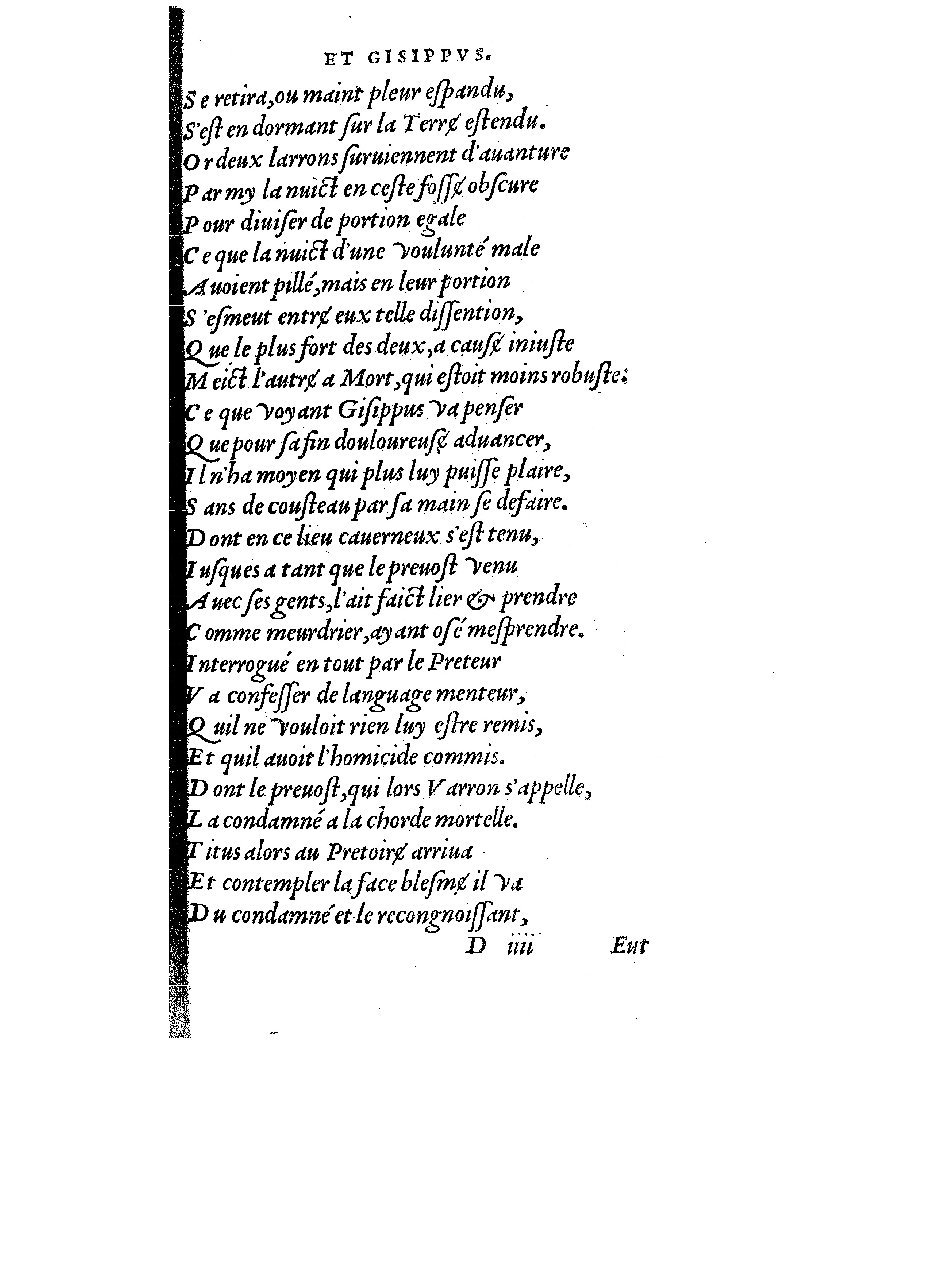 ET GISIPPVS.
Se retira, ou maint pleur eſpandu,
S'eſt en dormant ſur la Terrɇ eſtendu.
Or deux larrons ſuruiennent d'auanture
Par my la nuict en ceſte foſſɇ obſcure
Pour diuiſer de portion egale
Ce que la nuict d'une voulunté male
Auoient pillé, mais en leur portion
S'eſmeut entrɇ eux telle diſſention,
Que le plus fort des deux, a cauſɇ iniuſte
Meict l'autrɇ a Mort, qui eſtoit moins robuſte:
Ce que voyant Giſippus va penſer
Que pour ſa fin douloureuſɇ aduancer,
Il n'ha moyen qui plus luy puiſſe plaire,
Sans de couſteau par ſa main ſe defaire.
Dont en ce lieu cauerneux s'eſt tenu,
Iuſques a tant que le preuoſt venu
Auec ſes gents, l'ait faict lier & prendre
Comme meurdrier, ayant oſé meſprendre.
Interrogué en tout par le Preteur
Va confeſſer de language menteur,
Quil ne vouloit rien luy eſtre remis,
Et quil auoit l'homicide commis.
Dont le preuoſt, qui lors Varron s'appelle,
La condamné a la chorde mortelle.
Titus alors au Pretoirɇ arriua
Et contempler la face bleſmɇ il va
Du condamné et le recongnoiſſant,
D iiii Eut